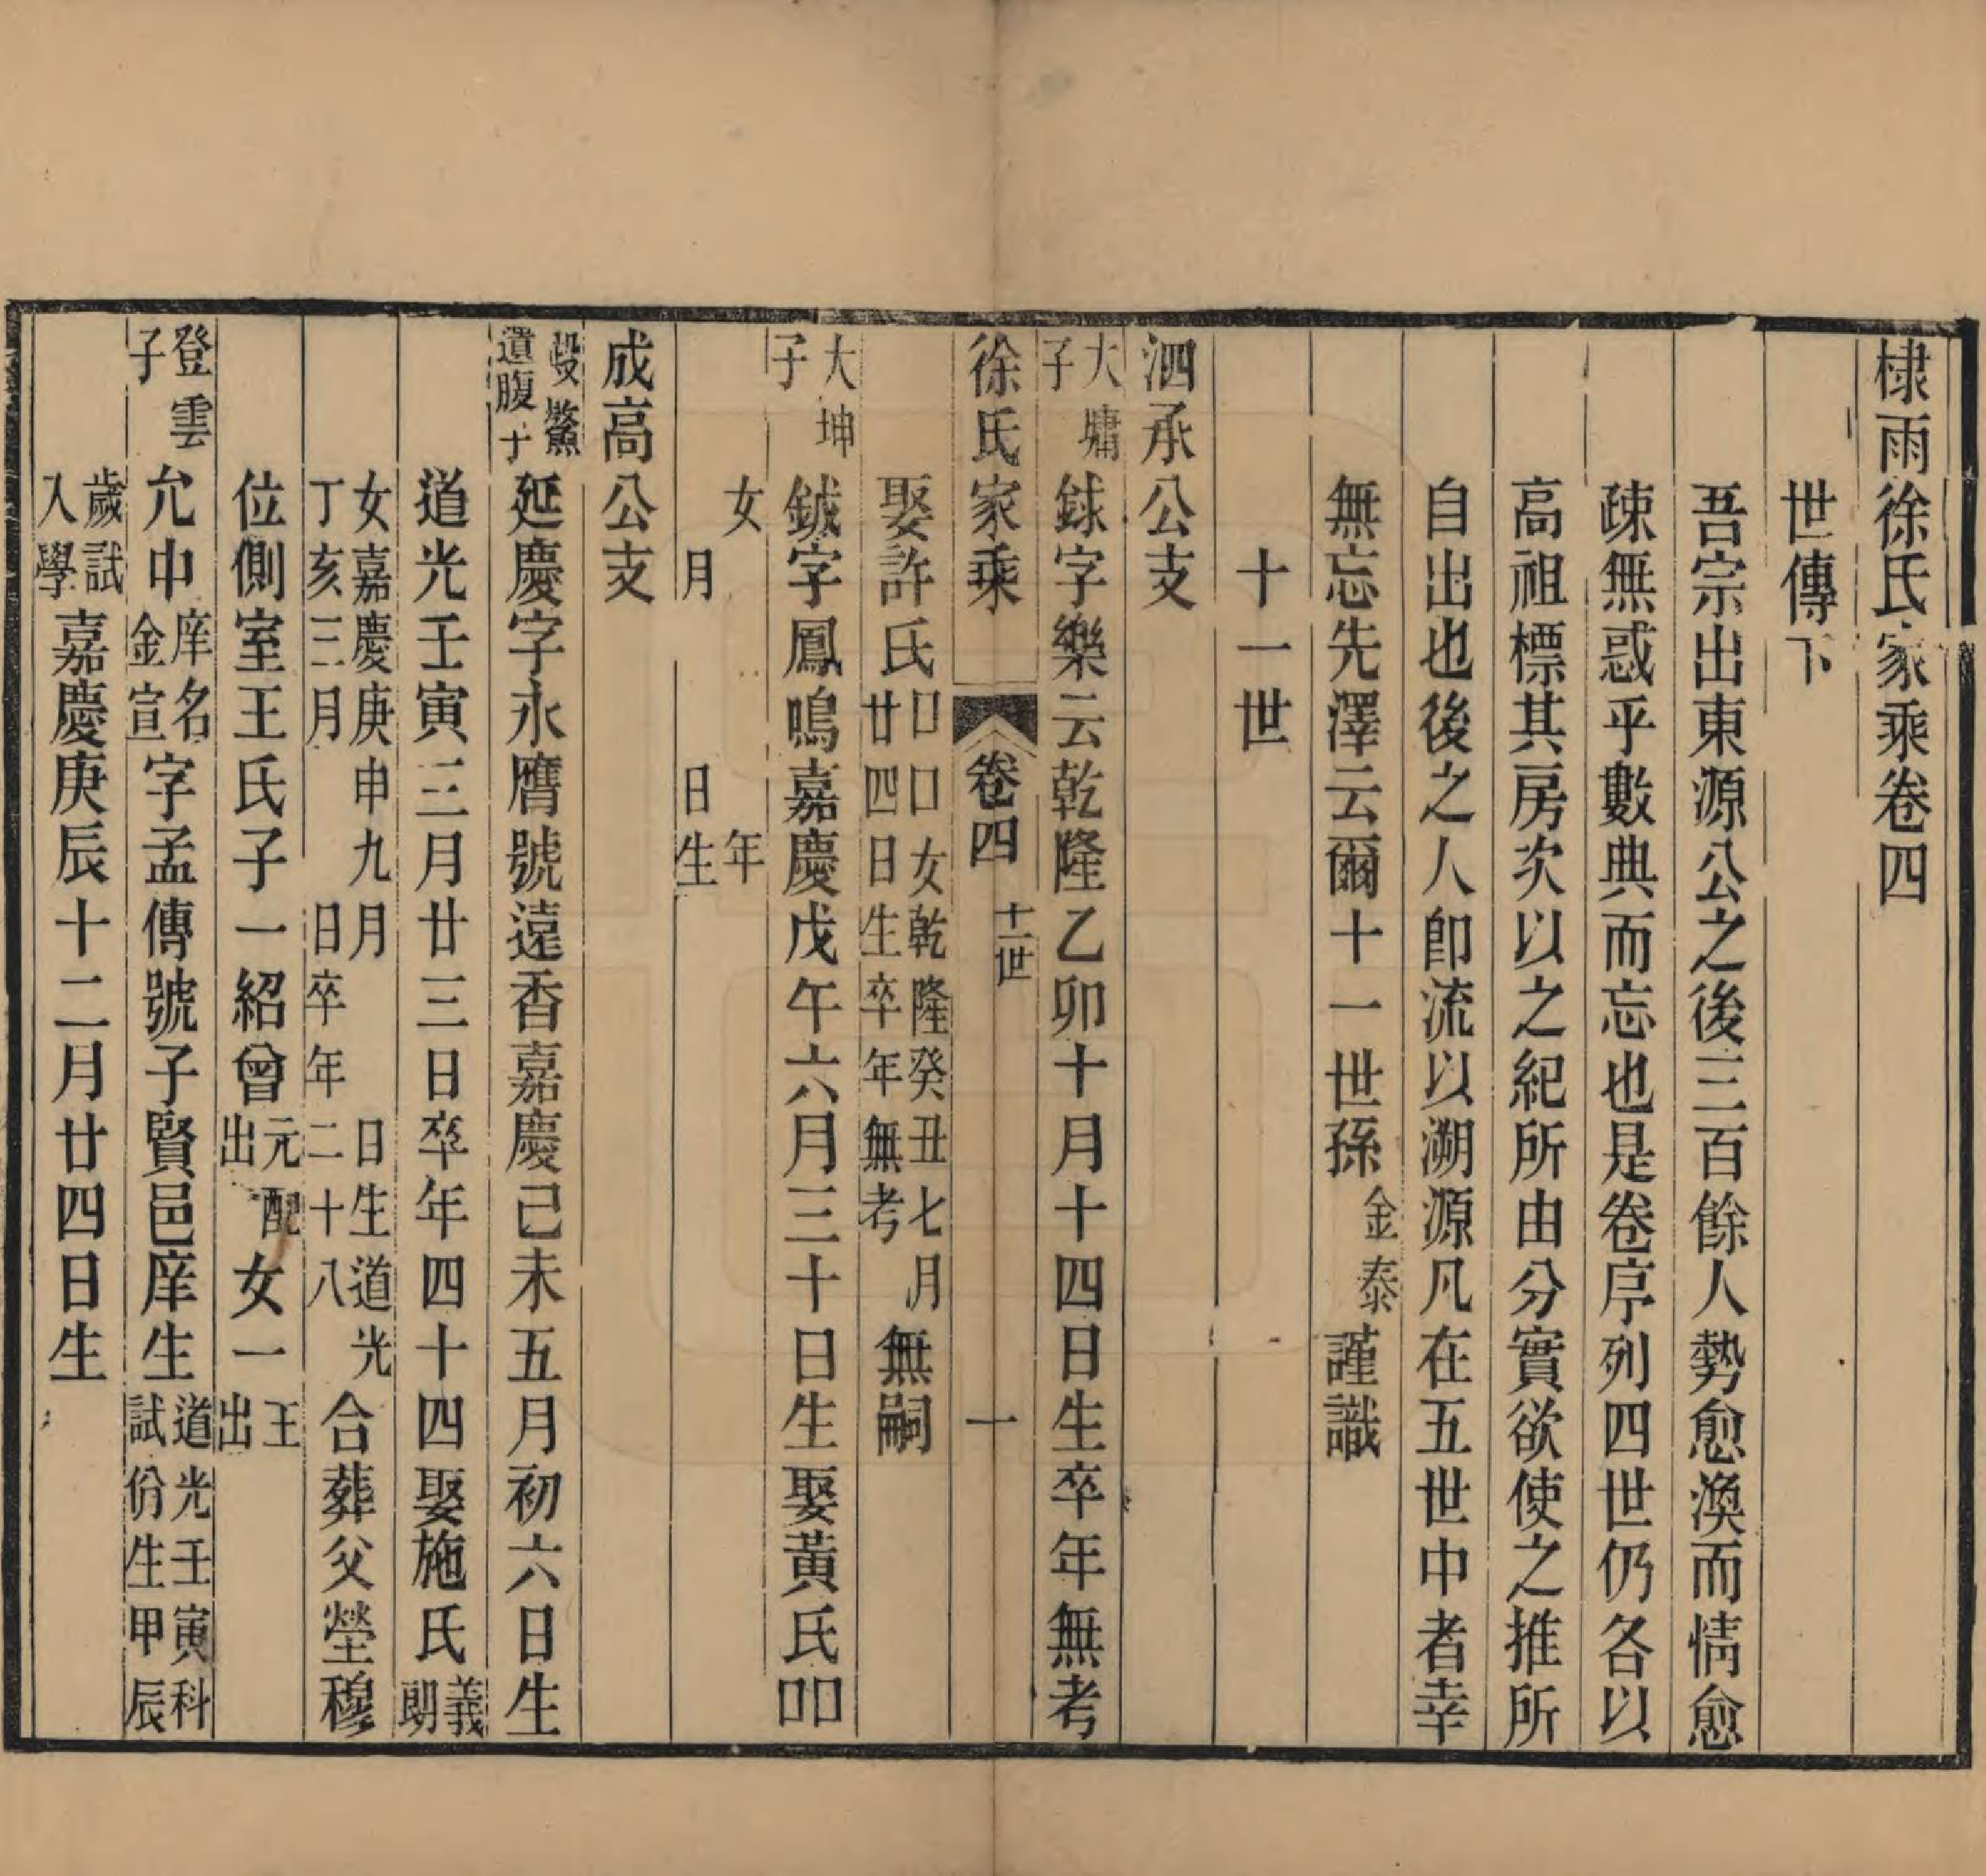 棣雨徐氏家乘卷四
世傳下
吾宗出東源公之後三百餘人勢愈渙而情愈
疎無惑乎數典而忘也是卷序列四世仍各以
高祖標其房次以之紀所由分實欲使之推所
自出也後之人卽流以溯源凡在五世中者幸
無忘先澤云爾十一世孫金泰謹識
十一世
泗承公支
大墉子 銶字樂云乾隆乙卯十月十四日生卒年無考
徐氏家乘 卷四 十一世 一
娶許氏口口女乾隆癸丑七月廿四日生卒年無考無嗣
大坤子 鉞字鳳鳴嘉慶戊午六月三十日生娶黃氏口口
女 年 月 日生
成高公支
殳鰲遺腹子 延慶字永膺號遠香嘉慶己未五月初六日生
道光壬寅三月廿三日卒年四十四娶施氏義朗
女嘉慶庚申九月 日生道光丁亥三月 日卒年二十八合葬父塋穆
位側室王氏子一紹曾元配出女一王出
登雲子 允中庠名金宣字孟傳號子賢邑庠生道光壬寅科試佾生甲辰
歲試入學嘉慶庚辰十二月廿四日生